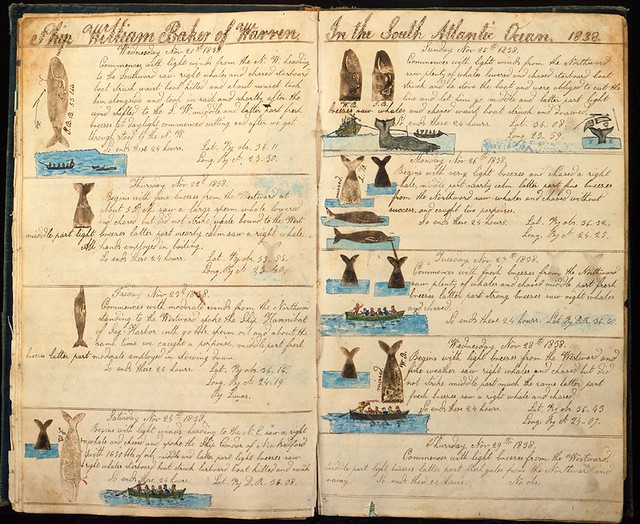 Ship William Baker of Warren.
Wednesday Nov 21st 1838.
Commences with light winds from the N. W. heading
to the Southward saw right whales and chased starboard
boat struck waist boat killed and about sunset took
him alongside and took in sail and shortly after the
wind shifted to the S. W. middle and latter part fresh
breezes at daylight commenced cutting and after we got
through stood to the N. W.
So ends these 24 hours. Lat. By obs. 36. 11
Long By ct. 23. 30.
S.B.B. 55
Thursday Nov 22d 1838.
Begins with fine breezes from the Westward at
about 3 P.M. saw a large sperm whale lowered
and chased but did not strike whale bound to the West
middle part light breezes latter part nearly calm saw a right whale.
All hands employed in boiling.
So ends these 24 hours Lat. By obs. 35. 55.
Long. By ct. 23. 40.
Friday Nov 23d 1838.
Commences with moderate winds from the Northward
standing to the Westward spoke the Ship Hannibal
of Sag Harbor with 60 bbls sperm oil and about the
same time we caught a porpoise. middle part fresh
breezes latter part moderate employed in stowing down.
So ends these 24 hours Lat. By obs. 36. 16.
Long By ct 24. 19
By Lunar.
Saturday Nov 24th 1838.
Begins with light winds heading to the N. E. saw a right
whale and chased and spoke the Ship Condor of New Bedford
with 1650 bbls of oil, middle and latter part light breezes saw
right whales larboard boat struck larboard boat killed and sunk
So ends these 24 hours Lat. By D.R. 36. 08.
In the South Atlantic Ocean. 1838.
Sunday Nov 25th 1838.
Commences with light winds from the Northward
saw plenty of whales lowered and chased starboard boat
struck and he stove the boat and were obliged to cut the
line and let him go middle and latter part light
breezes saw whales and chased waist boat struck and drawed.
So ends these 24 hours. Lat. 36. 18
Long. 23. 59.
W. B.
S. B.
Monday Nov 26th 1838.
Begins with very light breezes and chased a right
whale, middle part nearly calm latter part has breezes
from the Northward saw whales and chased without
success, and caught two porpoises.
So ends these 24 hours. Lat. By obs. 36. 32.
Long. By ct. 24. 25.
Tuesday Nov 27th 1838.
Commences with fresh breezes from the Northward
saw plenty of whales and chased middle part fresh
breezes latter part strong breezes saw right whales
and chased.
So ends these 24 hours. Lat By D.R. 36. 50.
Wednesday Nov 28th 1838.
Begins with light breezes from the Westward and
fine weather saw right whales and chased but did
not strike middle part much the same latter part
fresh breezes saw a right whale and chased.
So ends these 24 hours Lat. By obs. 36. 43
Long By ct. 23. 07.
W.B.
Thursday, Nov 29th 1838.
Commences with light breezes from the Westward,
middle part light breezes latter part fresh gales from the Northward and
So ends these 24 hours. No obs.